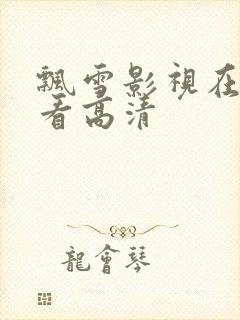 飄雪影視在
看高清
龍會琴